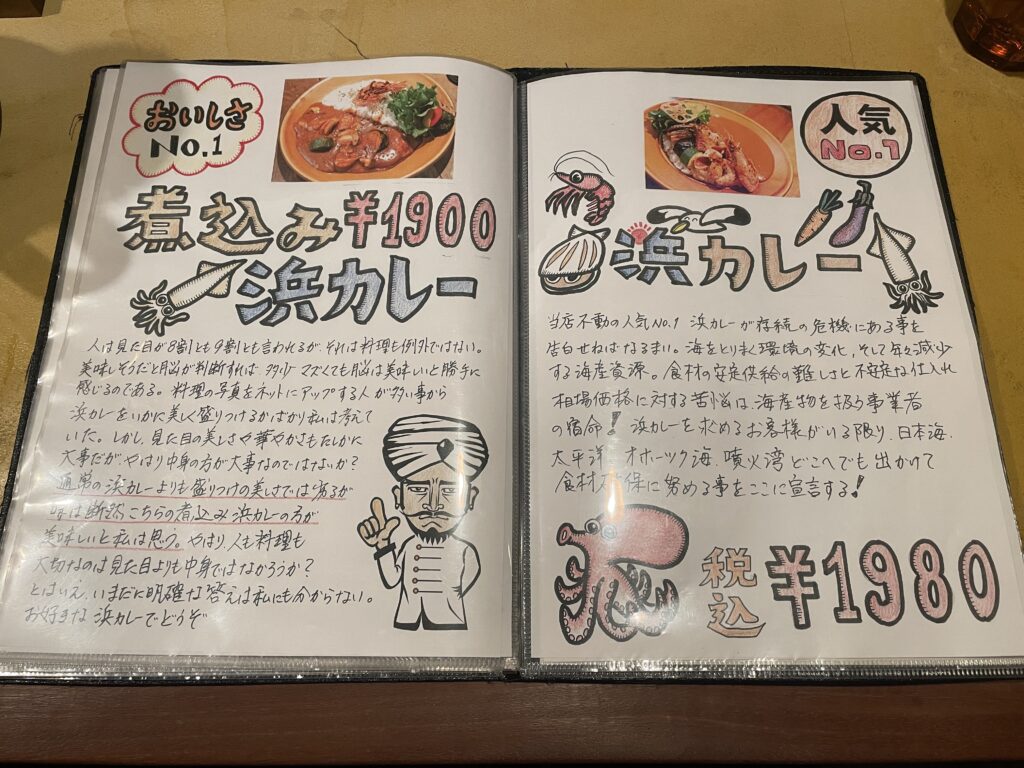 おいしさ
No.1
煮込み¥1900
浜カレー
人は見た目が8割とも9割とも言われるが、それは料理も例外ではない。
美味しそうだと脳が判断すれば 多少マズくても脳は美味いと勝手に
感じるのである。料理の写真をネットにアップする人が多い事から
浜カレーをいかに美しく盛りつけるかばかり私は考えて
いた。しかし、見た目の美しさや華やかさもたしかに
大事だが、やはり中身の方が大事なのではないか?
通常の浜カレーよりも盛りつけの美しさでは劣るが
味は断然こちらの煮込み浜カレーの方が
美味しいと私は思う。やはり、人も料理も
大切なのは見た目よりも中身ではなかろうか?
とはいえ、いまだに明確な答えは私にも分からない。
お好きな浜カレーでどうぞ
人気
No.1
浜カレー
当店不動の人気No.1 浜カレーが存続の危機にある事を
告白せねばなるまい。海をとりまく環境の変化、そして年々減少
する海産資源。食材の安定供給の難しさと不安定な仕入れ
相場価格に対する苦悩は、海産物を扱う事業者
の宿命!浜カレーを求めるお客様がいる限り、日本海、
太平洋、オホーツク海、噴火湾どこへでも出かけて
食材確保に努める事をここに宣言する!
税込
¥1980